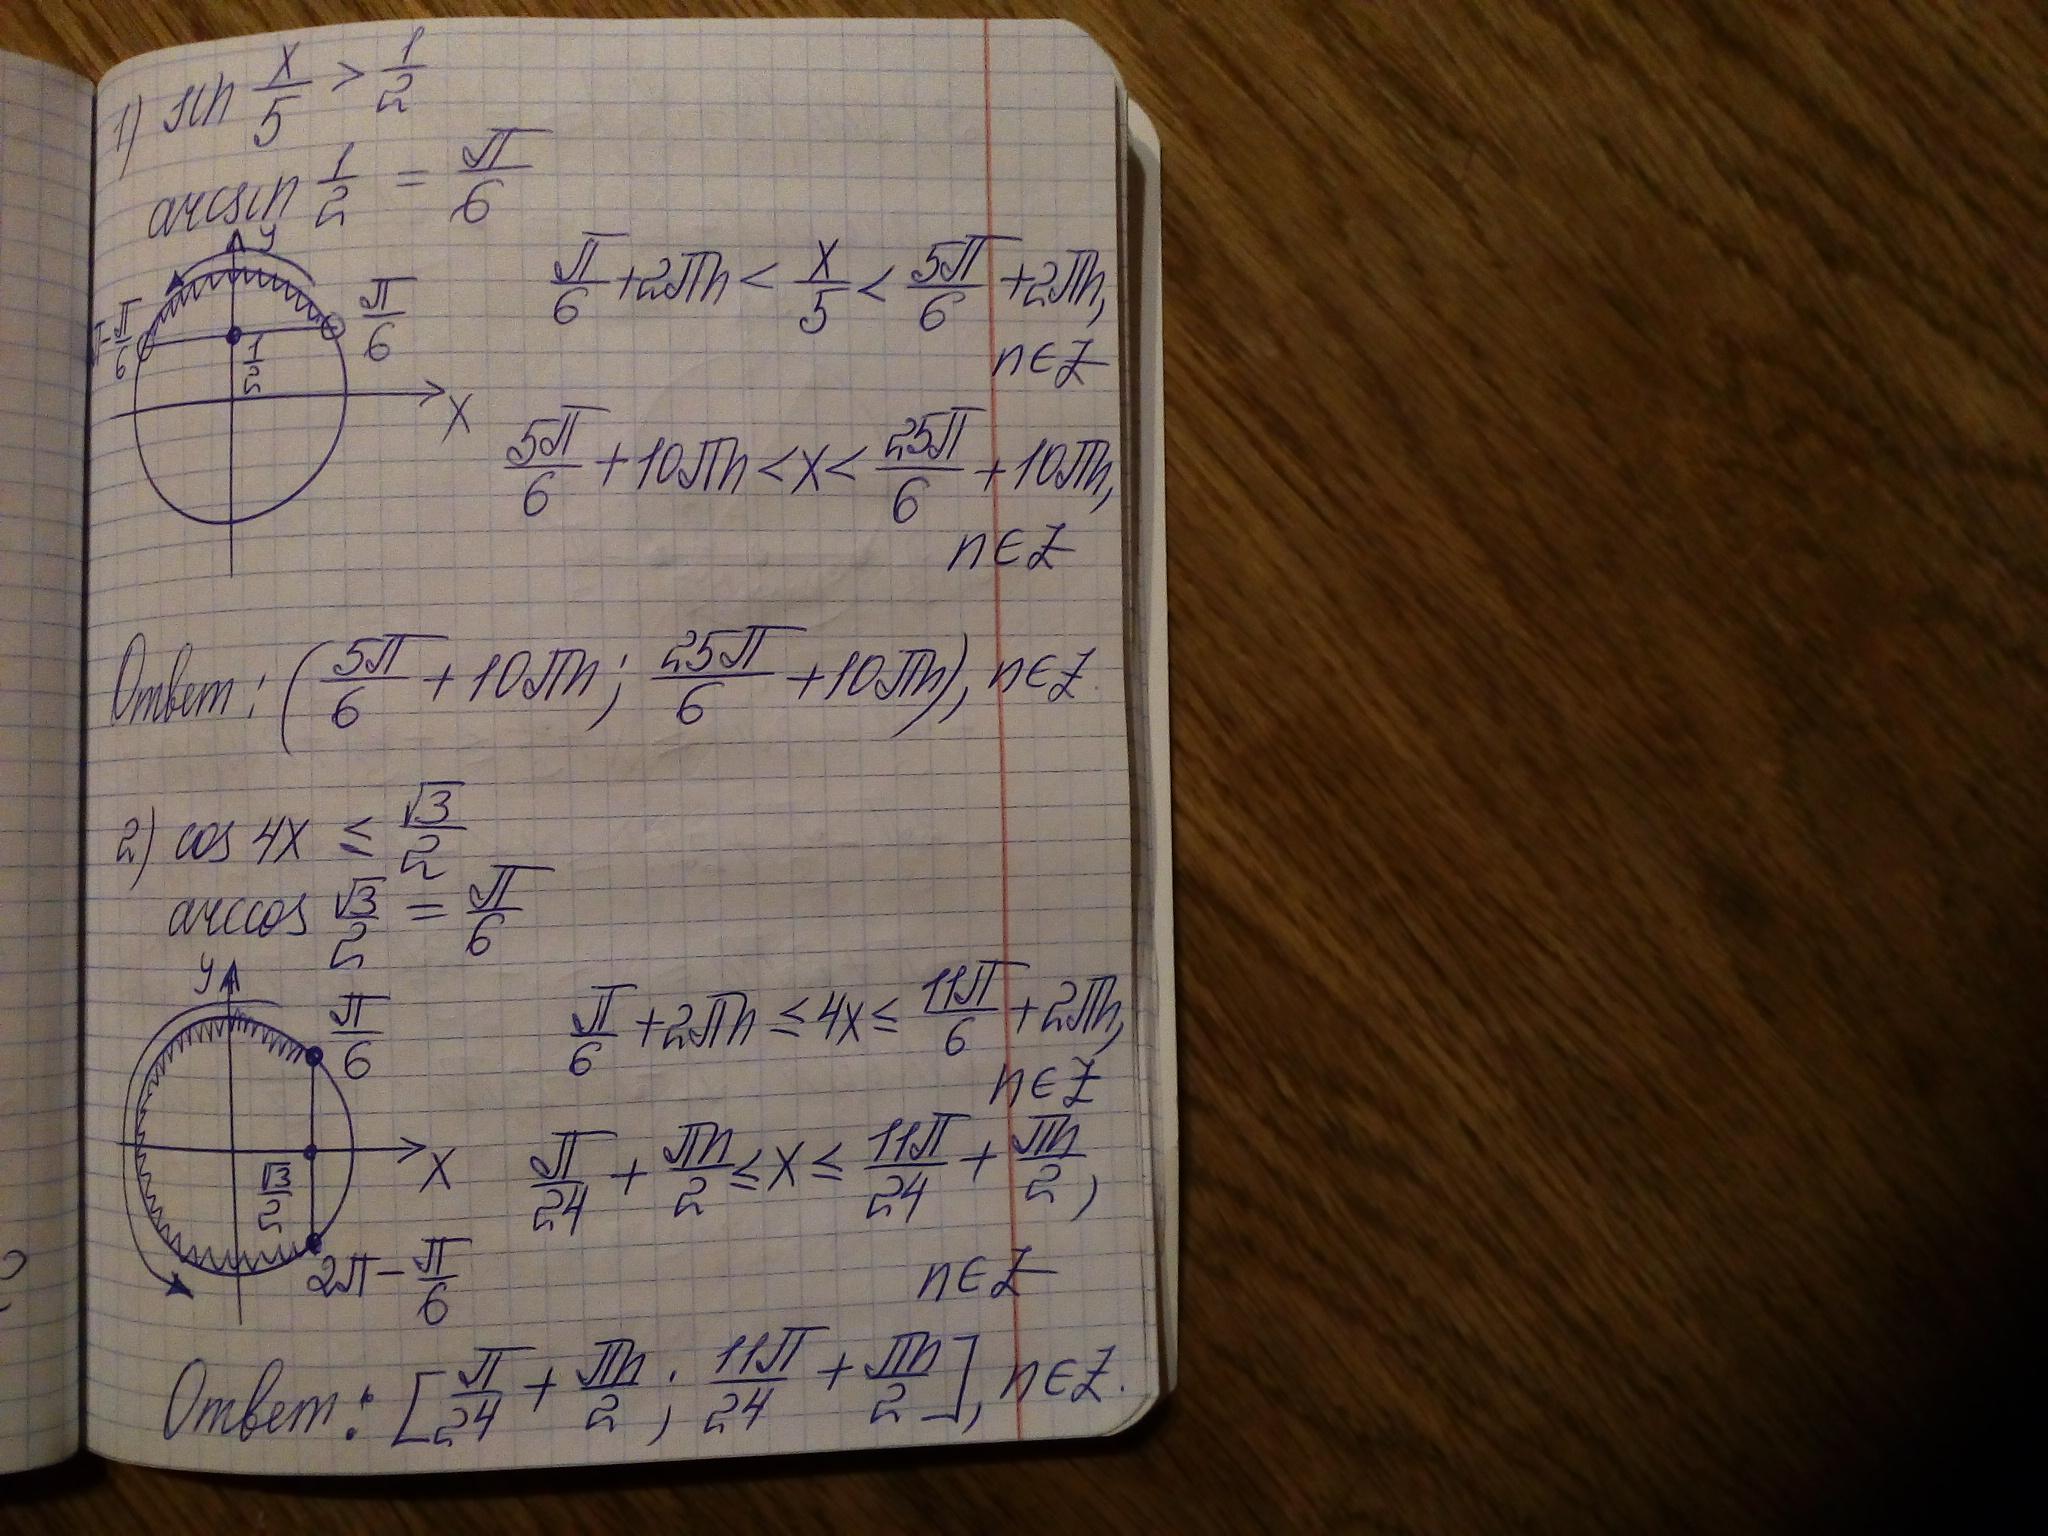 1) sin x/5 > 1/2
arcsin 1/2 = π/6
y
π - π/6
π/6
1/2
x
π/6 + 2πn < x/5 < 5π/6 + 2πn,
n ∈ Z
5π/6 + 10πn < x < 25π/6 + 10πn,
n ∈ Z
Ответ: (5π/6 + 10πn; 25π/6 + 10πn), n ∈ Z.
2) cos 4x ≤ √3/2
arccos √3/2 = π/6
y
π/6
√3/2
x
2π - π/6
π/6 + 2πn ≤ 4x ≤ 11π/6 + 2πn,
n ∈ Z
π/24 + πn/2 ≤ x ≤ 11π/24 + πn/2,
n ∈ Z
Ответ: [π/24 + πn/2; 11π/24 + πn/2], n ∈ Z.